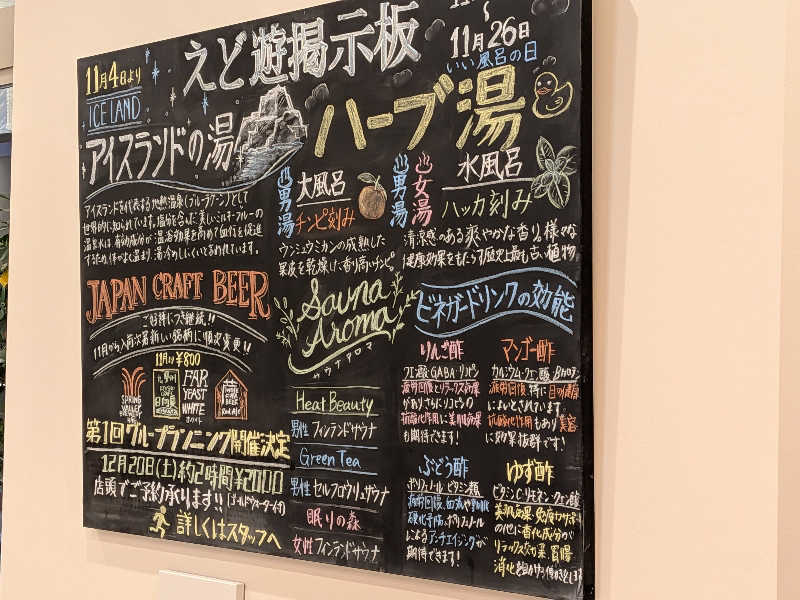 えど遊掲示板
11月4日より
ICELAND
アイスランドの湯
アイスランドを代表する地熱温泉(ブルーラグーン)として
世界的に知られています。塩分を含んだ美しいミルキーブルーの
温泉水は、有効成分が温浴効果を高めて血行を促進
するため、体が良く温まり、湯冷めしにくいと言われています。
JAPAN CRAFT BEER
ご好評につき継続!!
11月から入荷次第新しい銘柄に順次変更!!
11月より ¥800
SPRING VALLEY BREWERY
FAR YEAST WHITE
第1回グループランニング開催決定
12月20日(土)約2時間¥2000
店頭でご予約承ります!!
詳しくはスタッフへ
11月26日
いい風呂の日
ハーブ湯
男湯
大風呂
チンピ刻み
ウンシュウミカンの成熟した
果皮を乾燥した香り高いチンピ。
男湯
女湯
水風呂
ハッカ刻み
清涼感のある爽やかな香り。様々な
健康効果をもたらす歴史上最も古い植物
Sauna Aroma
サウナアロマ
Heat Beauty
男性 フィンランドサウナ
Green Tea
男性 セルフロウリュサウナ
眠りの森
女性 フィンランドサウナ
ビネガードリンクの効能
りんご酢
クエン酸 GABA
疲労回復とリラックス効果
も期待できます!
マンゴー酢
カルシウム・クエン酸
疲労回復、特に目の
によいとされています。
抗酸化作用もあり美容
に効果抜群です!
ぶどう酢
ポリフェノール ビタミン類
によるアンチエイジングが
期待できます!
ゆず酢
ビタミンC リモネン クエン酸
美肌効果 免疫力サポート
の他に香化成分が
リラックス効果 胃腸